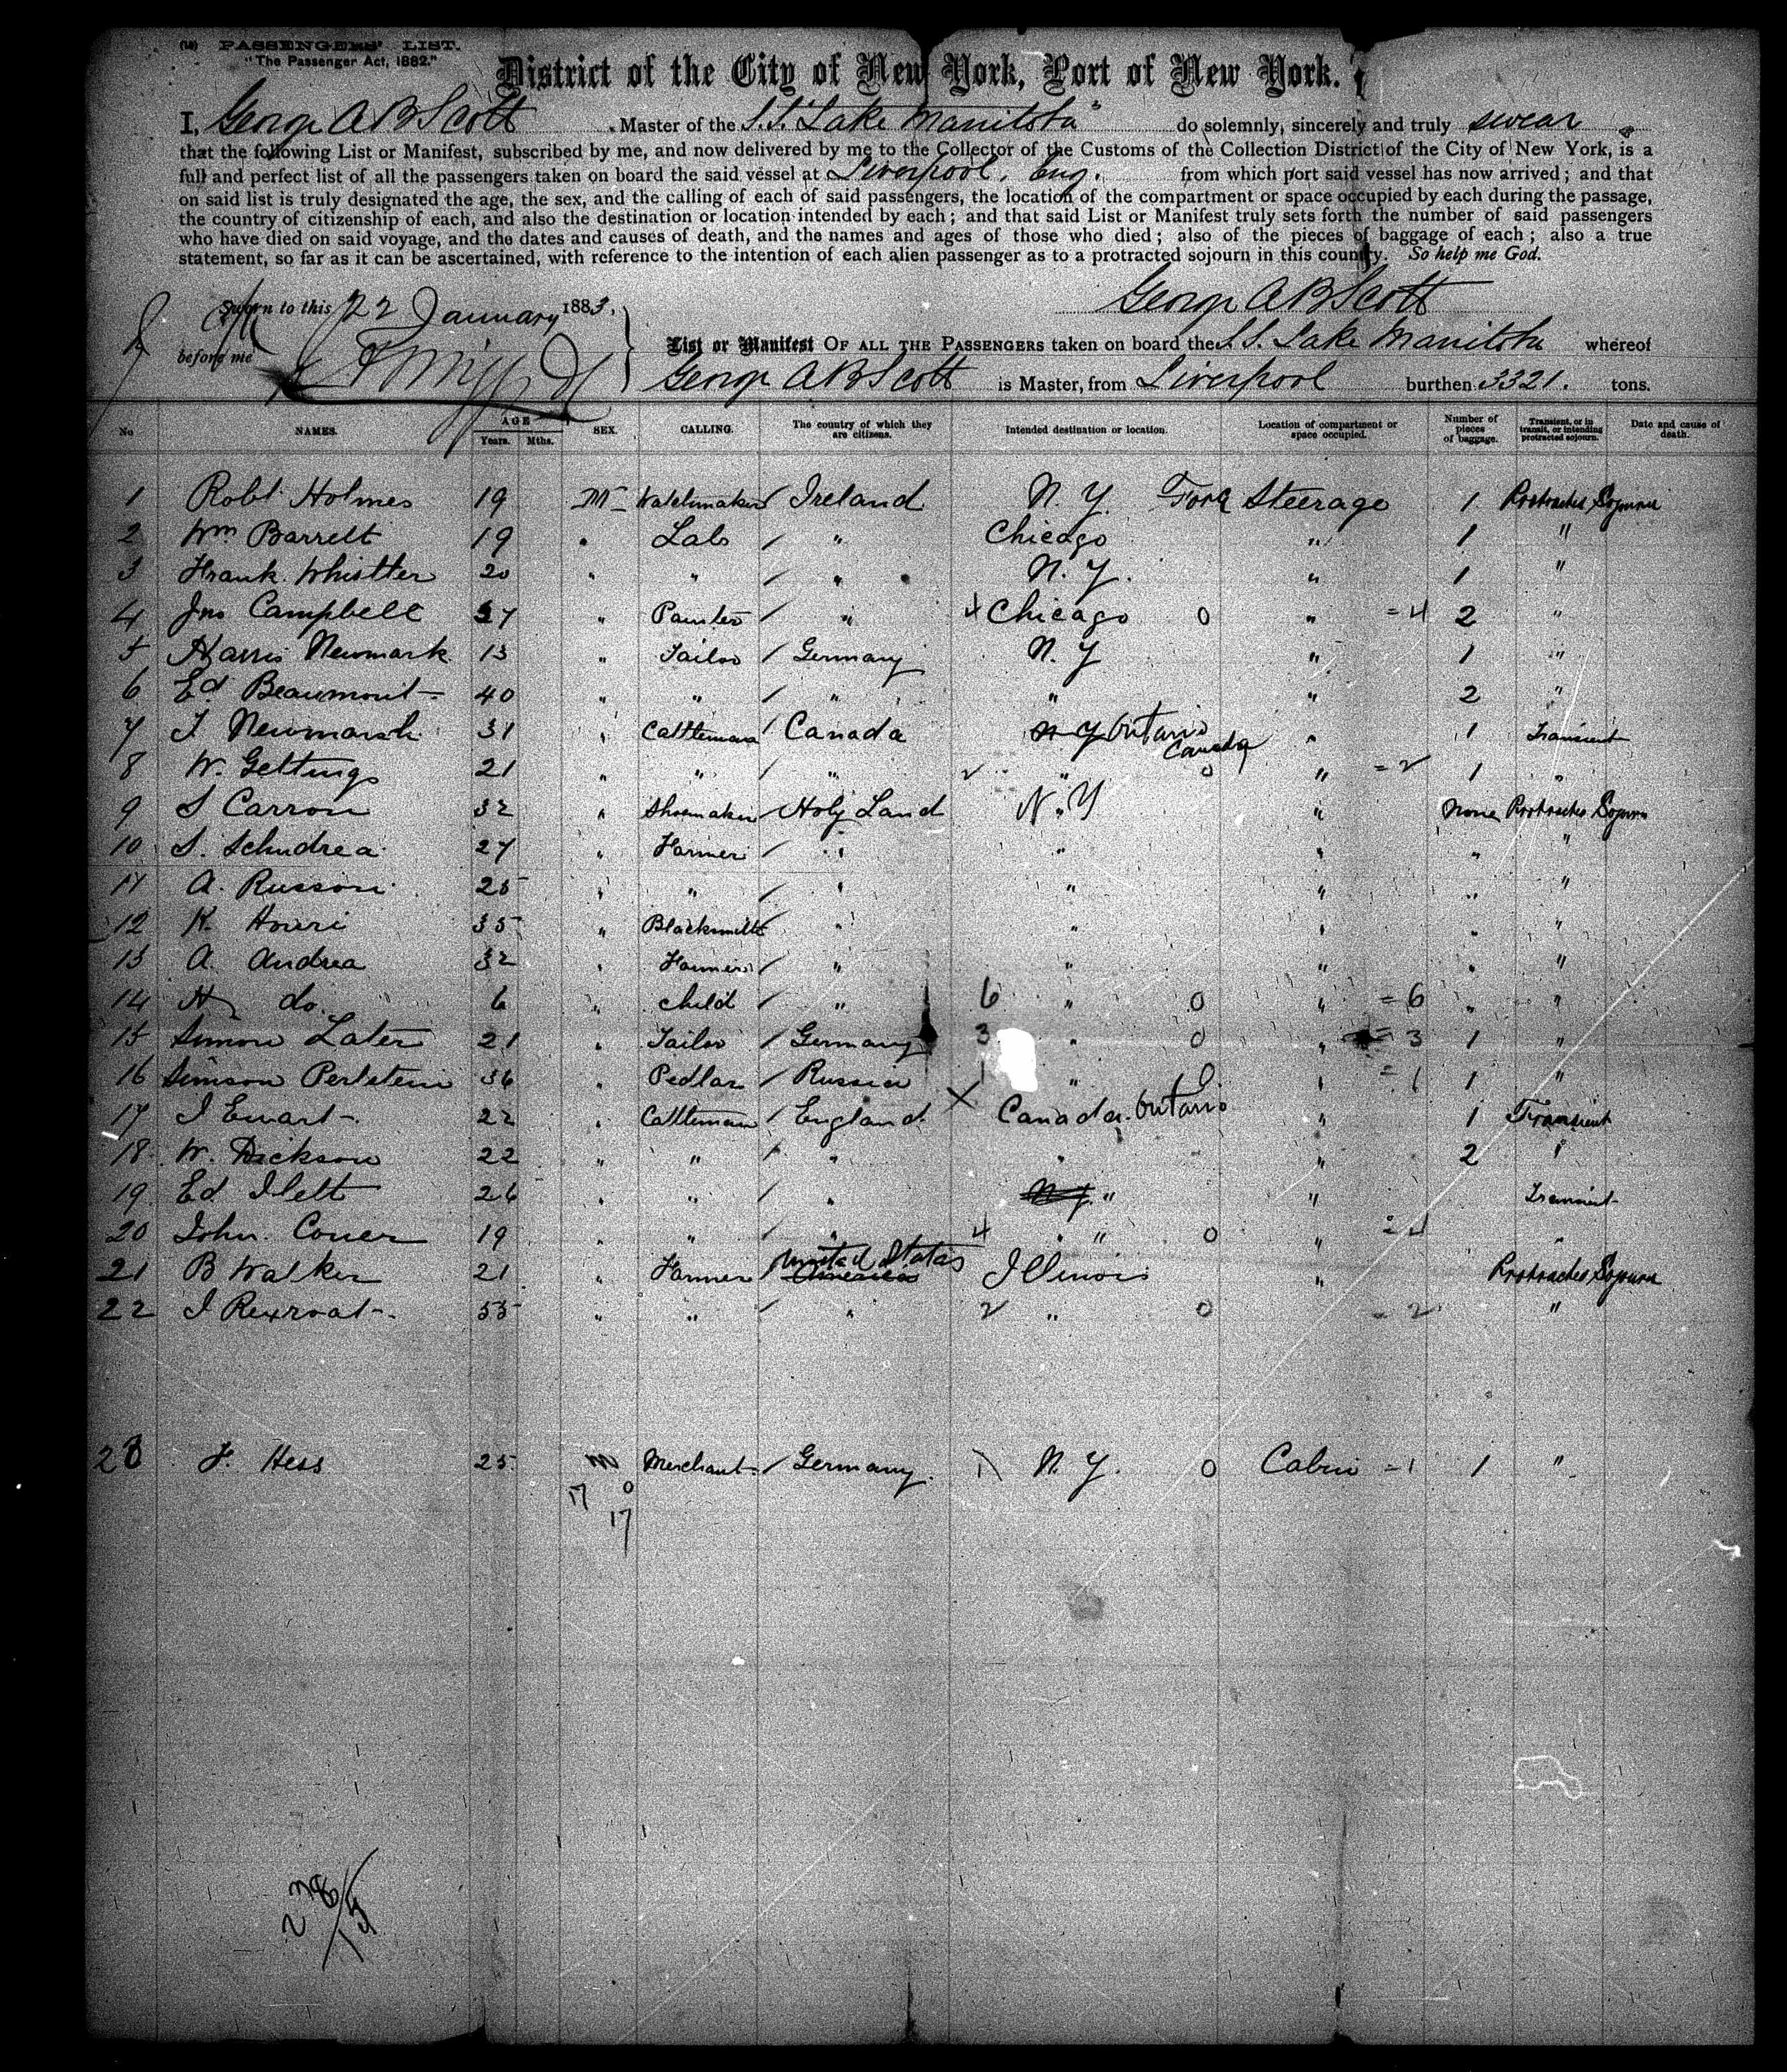 (18) PASSENGERS' LIST.
"The Passenger Act, 1882."
District of the City of New York, Port of New York.
I, George A B Scott Master of the S.S. "Lake Manitoba" do solemnly, sincerely and truly swear
that the following List or Manifest, subscribed by me, and now delivered by me to the Collector of the Customs of the Collection District of the City of New York, is a
full and perfect list of all the passengers taken on board the said vessel at Liverpool, Eng. from which port said vessel has now arrived; and that
on said list is truly designated the age, the sex, and the calling of each of said passengers, the location of the compartment or space occupied by each during the passage,
the country of citizenship of each, and also the destination or location intended by each; and that said List or Manifest truly sets forth the number of said passengers
who have died on said voyage, and the dates and causes of death, and the names and ages of those who died; also of the pieces of baggage of each; also a true
statement, so far as it can be ascertained, with reference to the intention of each alien passenger as to a protracted sojourn in this country. So help me God.
Sworn to this 22 January 1883, George A B Scott
before me
List or Manifest OF ALL THE PASSENGERS taken on board the S.S. Lake Manitoba whereof
George A B Scott is Master, from Liverpool burthen 3321. tons.
No NAMES. AGE Years. Mths. SEX. CALLING. The country of which they are citizens. Intended destination or location. Location of compartment or space occupied. Number of pieces of baggage. Transient, or in transit, or intending protracted sojourn. Date and cause of death.
1 Robt. Holmes 19 M Watchmaker / Ireland N. Y. Steerage 1 Protracted Sojourn
2 Wm Barrett 19 " Lab / " Chicago " 1 "
3 Frank Whistter 20 " " / " N. Y. " 1 "
4 Jno Campbell 37 " Painter / " 4 Chicago 0 " = 4 2 "
5 Harris Newmark 13 " Tailor / Germany N. Y " 1 "
6 Ed Beaumont 40 " " / " " " 2 "
7 J Newmarsh 31 " Cattleman / Canada N Y Ontario Canada " 1 Transient
8 W. Gettings 21 " " / " 2 " 0 " = 2 1 "
9 S Carron 32 " Shoemaker / Holy Land N. Y " None Protracted Sojourn
10 S. Schudrea 27 " Farmer / " " " " "
11 A. Russon 25 " " / " " " " "
12 K. Houri 35 " Blacksmith / " " " " "
13 A. Andrea 32 " Farmer / " " " " "
14 H do. 6 " child / " 6 " 0 " = 6 " "
15 Simon Later 21 " Tailor / Germany 3 " 0 " = 3 1 "
16 Simson Perlstein 36 " Pedlar / Russia 1 " 0 " = 1 1 "
17 J Ewart 22 " Cattleman / England X Canada. Ontario " 1 Transient
18 W. Dickson 22 " " / " " " 2 "
19 Ed Ilett 26 " " / " N.Y. " " Transient
20 John. Coner 19 " " / " 4 " " 0 " = 4 "
21 B Walker 21 " Farmer / United States America Illinois " Protracted Sojourn
22 J Rexroat 55 " " / " 2 " 0 = 2 "
23 F. Hess 25 M Merchant / Germany. 1 N. Y. 0 Cabin = 1 1 "
17 0
17